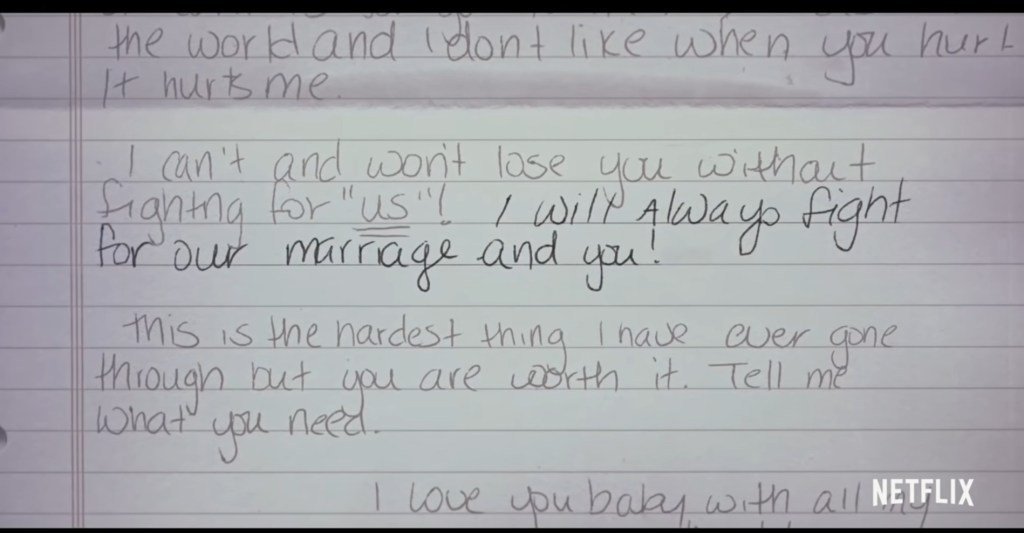 the world and I dont like when you hurt
It hurts me.
I can't and won't lose you without
fighting for "us"! I will Always fight
for our marriage and you!
This is the hardest thing I have ever gone
through but you are worth it. Tell me
what you need.
I love you baby with all my
NETFLIX